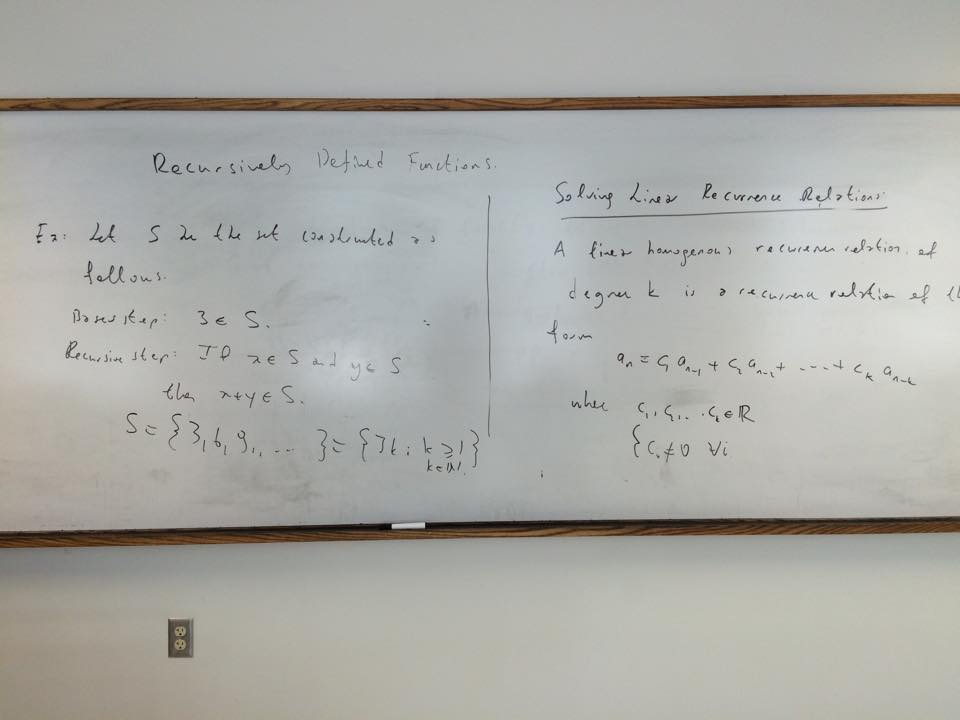 Recursively Defined Functions.
Ex: Let S be the set constructed as
follows.
Bases step: 3 ∈ S.
Recursive step: If x ∈ S and y ∈ S
then x+y ∈ S.
S = {3, 6, 9, ... } = {3k ; k ≥ 1}
k ∈ ℕ.
Solving Linear Recurrence Relations:
A linear homogenous recurrence relation of
degree k is a recurrence relation of
form
aₙ = c₁ aₙ₋₁ + c₂ aₙ₋₂ + ---- + cₖ aₙ₋ₖ
where c₁, c₂, .. cₖ ∈ ℝ
{ cᵢ ≠ 0 ∀i